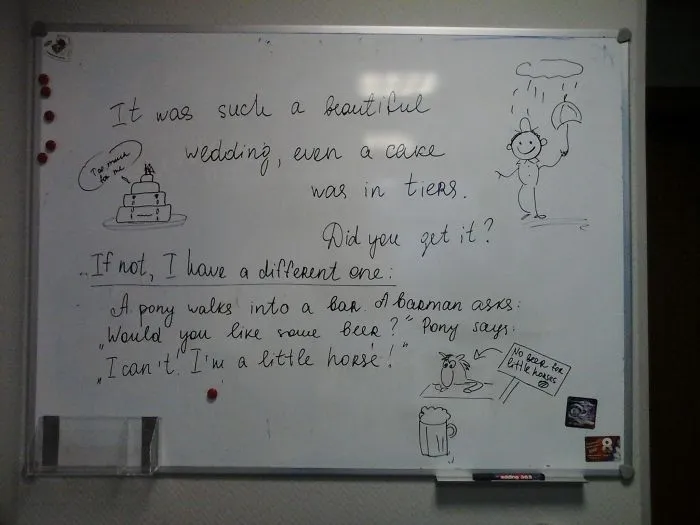 It was such a beautiful
wedding, even a cake
was in tiers.
Too much
for me
Did you get it?
If not, I have a different one:
A pony walks into a bar. A barman asks:
„Would you like some beer?" Pony says:
„I can't! I'm a little horse!"
No beer for
little horses
8
edding 363